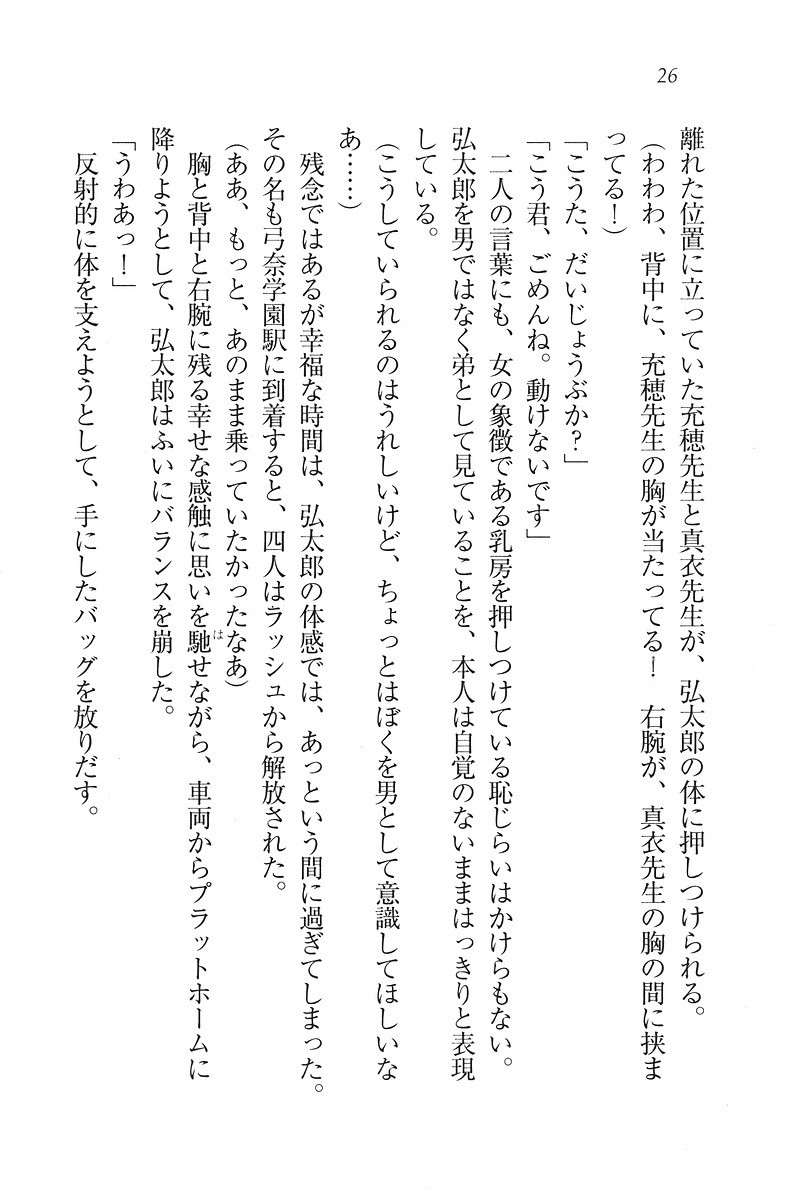 26
離れた位置に立っていた充穂先生と真衣先生が、弘太郎の体に押しつけられる。
(わわわ、背中に、充穂先生の胸が当たってる！　右腕が、真衣先生の胸の間に挟ま
ってる！)
「こうた、だいじょうぶか？」
「こう君、ごめんね。動けないです」
二人の言葉にも、女の象徴である乳房を押しつけている恥じらいはかけらもない。
弘太郎を男ではなく弟として見ていることを、本人は自覚のないままはっきりと表現
している。
(こうしていられるのはうれしいけど、ちょっとはぼくを男として意識してほしいな
あ……)
残念ではあるが幸福な時間は、弘太郎の体感では、あっという間に過ぎてしまった。
その名も弓奈学園駅に到着すると、四人はラッシュから解放された。
(ああ、もっと、あのまま乗っていたかったなあ)
胸と背中と右腕に残る幸せな感触に思いを馳せながら、車両からプラットホームに
は
降りようとして、弘太郎はふいにバランスを崩した。
「うわあっ！」
反射的に体を支えようとして、手にしたバッグを放りだす。